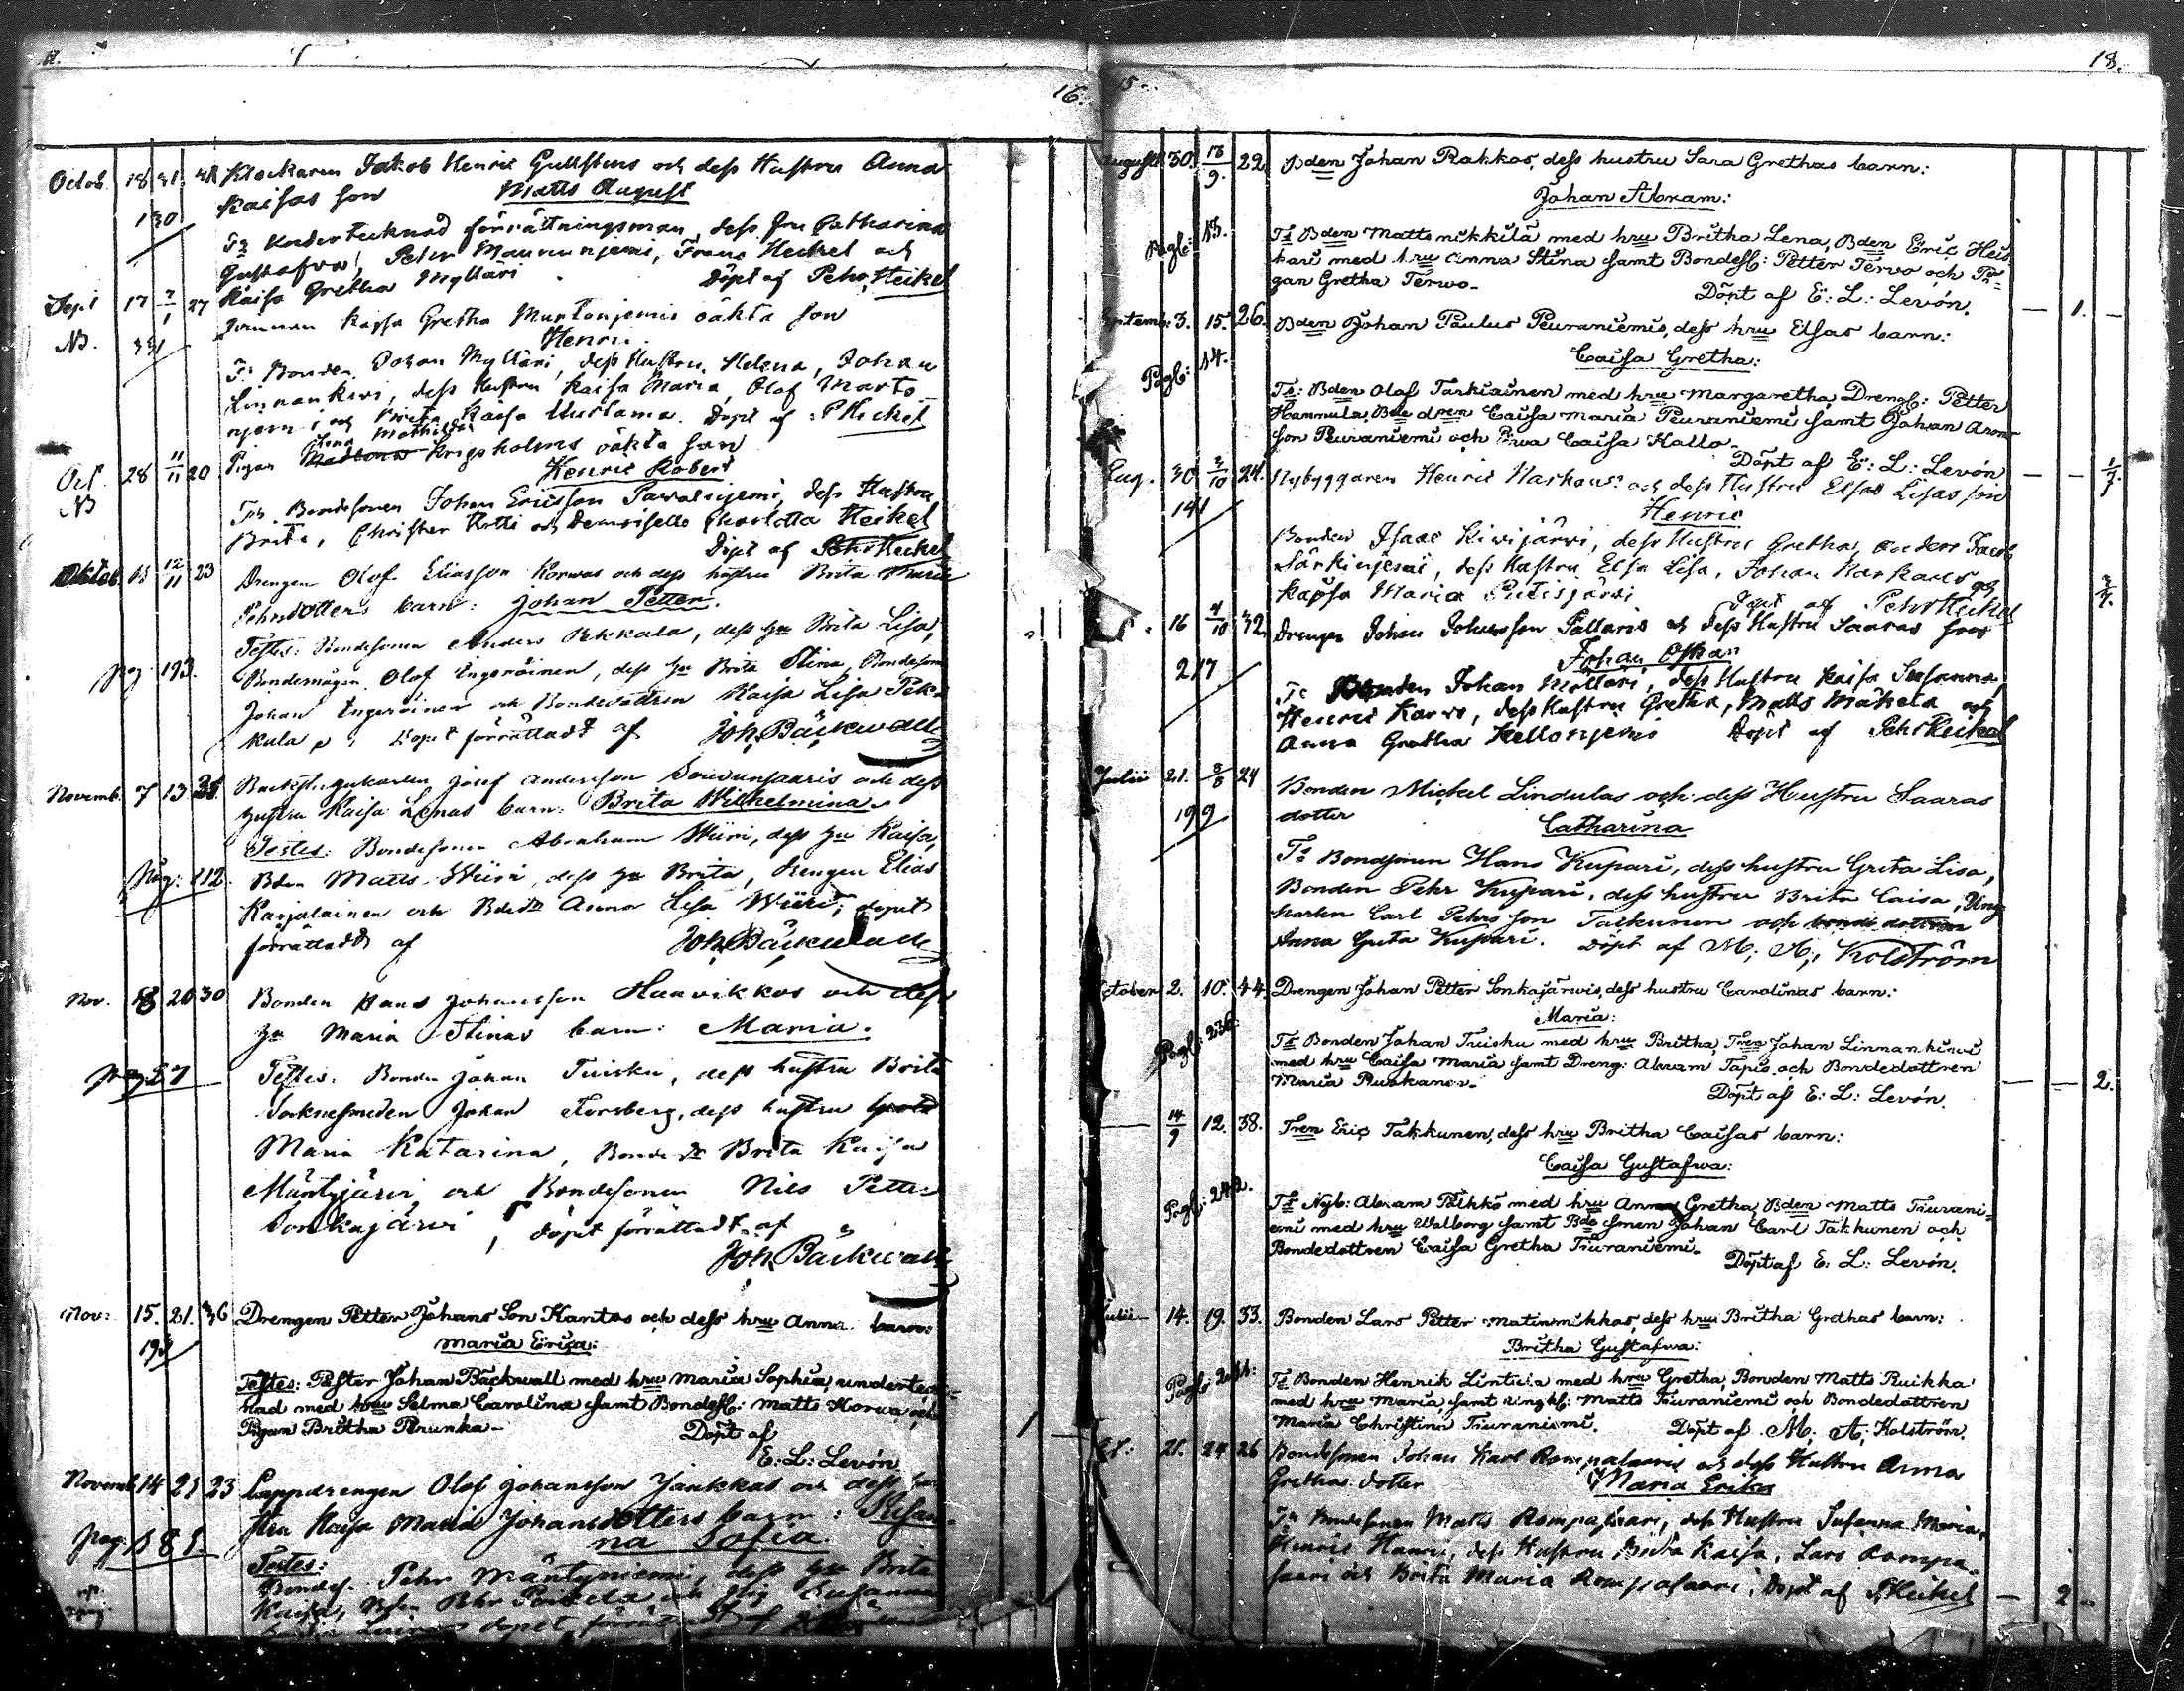 16.
Octob. 18 31. 42 Klockaren Jakob Henric Gullstens och dess Hustru Anna
Kaisas son Matts August
130 Ts undertecknad förrättningsman, dess fru Catharina
Gustafva, Peter Maununjemi, Frans Heikel och
Kaisa Gretha Mylläri Döpt af Pehr Heikel
Sept 17 27 Kajsa Gretha Murtonjemis oäkta son
NB. Henric
Ts Bonden Johan Mylläri, dess Hustru Helena, Johan
Linnankivi, dess Hustru Kaisa Maria, Olof Marto
njemi och Kaisa Döpt af P Heikel
Oct. 28 11/11 20 Pigan Krigsholms oäkta son
NB Henric Robert
Ts Bondesonen Johan Ericsson Pawalnjemi, dess Hustru
Brita, Christer och Demoiselle Charlotta Heikel
Döpt af Pehr Heikel
Oktob 12/11 23 Drengen Olof Eliasson Korwas och dess hustru Brita Maria
Pehrsdotters barn: Johan Petter.
Testes: Bondesonen Anders Pekkala, dess Hu Brita Lisa,
pag. 193. Bondemågen Olof Ingeröinen, dess Hu Brita Stina, Bondeson
Johan Ingeröinen och Bondedottren Kaisa Lisa Pek-
kala, Döpet förrättadt af Joh. Bäckwall
Novemb. 7 13 35. Backstugukarlen Josef Andersson Souvunsaaris och dess
hustru Kaisa Lenas barn: Brita Wilhelmina.
Testes: Bondesonen Abraham Wiiri, dess Hu Kaisa,
Pag: 112. Bden Matts Wiiri, dess Hu Brita, Drengen Elias
Karjalainen och Bdedtr Anna Lisa Wiiri, döpet
förrättadt af Joh. Bäckwall
Nov. 18 20 30 Bonden Hans Johansson Haavikkos och dess
Hu Maria Stinas barn: Maria.
pag. 57 Testes: Bonden Johan Tuisku, dess hustru Brita
Socknesmeden Johan Forsberg, dess hustru
Maria Katarina, Bondedtr Brita Kaisa
Mäntyjärvi och Bondesonen Nils Petter
Sonkajärvi, döpet förrättadt af
Joh. Bäckwall
Nov: 15. 21. 36 Drengen Petter Johans Son Kantos och dess hru Anna barn:
Maria Erica:
Testes: Pastor Johan Bäckwall med hru Maria Sophia, undertec-
nad med hru Selma Carolina samt Bondess: Matts Korva och
Pigan Britha Perunka- Döpt af
E: L: Levón
Novemb 14 21 23 Lappdrengen Olof Johansson Jänkkas och dess hu-
stru Kaisa Maria Johansdotters barn: Susan-
pag. 585. na Sofia.
Testes:
Bondes. Pehr Mäntyniemi, dess Hu Brita
Kaisa, Bden Pehr och Susanna
döpet förrättadt af
18.
August 30. 13/9. 22. Bden Johan Rakkos, dess hustru Sara Grethas barn:
Johan Abram:
Pagl: 13. Ts Bden Matts Nikkilä med hru Britha Lena, Bden Eric Heis
kari med hru Anna Stina samt Bondess: Petter Tervo och Pi-
gan Gretha Terwo- Döpt af E: L: Levón. — 1. —
Septemb: 3. 15. 26. Bden Johan Paulus Peuraniemis, dess hru Elsas barn:
Caisa Gretha:
Pagl: 14. Ts: Bden Olof Tarkiainen med hru Margaretha, Drengs: Petter
Hannula, Bde dren Caisa Maria Peuraniemi samt Johan Arons
son Peuraniemi och Caisa Kallo- Döpt af E: L: Levón
Aug. 30 2/10 24. Nybyggaren Henric Harhaus och dess Hustru Elsas Lisas son
141 Henric
Bonden Isaac Kiwijärwi, dess Hustru Gretha, Anders Jacob
Särkinjemi, dess Hustru Elsa Lisa, Johan Karhaus och
Kajsa Maria Putisjärvi Döpt af Pehr Heikel
16 4/10 32 Drengen Johan Johansson Pallaris och dess Hustru Saaras son
217 Johan Oskar
Ts Bonden Johan Mollari, dess Hustru Kaisa Susanna,
Henric Korvo, dess Hustru Gretha, Matts Mäkela och
Anna Gretha Kellonjemi Döpt af Pehr Heikel
Julii 21. 8/8 24 Bonden Mickel Lindulas och dess Hustru Saaras
199 dotter Catharina
Ts Bondsonen Hans Kupari, dess hustru Greta Lisa,
Bonden Pehr Kupari, dess hustru Brita Caisa, Ung
karlen Carl Pehrs son Takkunen och bonde dottren
Anna Greta Kupari. Döpt af M. A. Kolström
October 2. 10. 44. Drengen Johan Petter Sonkajärwis, dess hustru Carolinas barn:
Maria:
Pagl: 236. Ts Bonden Johan Tuisku med hru Britha, Johan Linnankiwi
med hru Caisa Maria samt Dreng. Abram Tapio och Bondedottren
Maria Ruokanen- Döpt af E: L: Levón. — — 2.
— 14/9 12. 38. Tren Eric Takkunen, dess hru Britha Caisas barn:
Caisa Gustafwa:
Pagl: 242. Ts Nyb: Abram Päikkö med hru Anna Gretha, Bden Matts Tiurani-
emi med hru Walborg samt Bde smen Johan Carl Takkunen och
Bondedottren Caisa Gretha Tiuraniemi- Döpt af E: L: Levón.
Julii- 14. 19. 33. Bonden Lars Petter Matinmikkos, dess hru Britha Grethas barn:
Britha Gustafwa:
Pagl: 241: Ts Bonden Henrik Lintula med hru Gretha, Bonden Matts Ruikka
med hru Maria, samt Ungkl: Matts Tiuraniemi och Bondedottren
Maria Christina Tiuraniemi. Döpt af M. A. Kolström.
21. 24 26 Bondesonen Johan Karl Rompasaaris och dess Hustru Anna
Grethas dotter Maria Erika
Ts Bondesonen Matts Rompasaari, dess Hustru Susanna Maria,
Henric Hannu, dess Hustru Brita Kaisa, Lars Rompa-
saari och Brita Maria Rompasaari, Döpt af P Heikel — 2 —